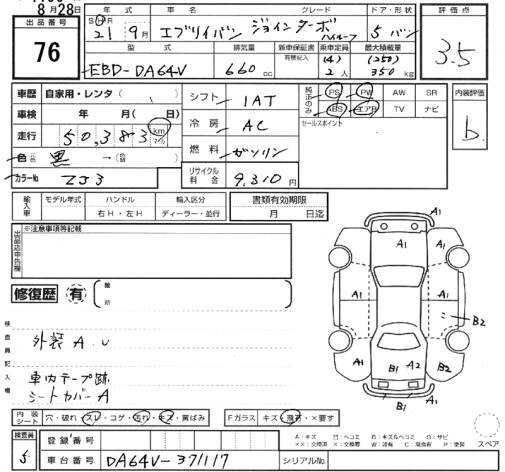 8月28日
出品番号
76
年式 車名 グレード ドア・形状
S H 21年 9月 エブリイバン ジョインターボ ハイルーフ 5 バン
型式 排気量 新車保証書 有無記入 乗車定員 最大積載量
EBD-DA64V 660cc (4) 2人 (250) 350kg
評価点
3.5
車歴 自家用・レンタ( )
車検 年 月( 日)
走行 50,383 km マイル
色 元色 黒 → (色替)
カラーNo ZJ3
シフト 1AT
冷房 AC
燃料 ガソリン
リサイクル料金 9,310円
純正のみ PS PW AW SR
ABS エアB TV ナビ
セールスポイント
内装評価
b
輸入車 モデル年式 ハンドル 右H・左H 輸入区分 ディーラー・並行
書類有効期限
月 日迄
出品店申告欄
※注意事項等記載
修復歴 有 箇所
検査員記入欄
外装A.U
車内テープ跡
シートカバーA
A1
A1
A1 A1
A1 A1 A1
B2
A1 A2 B2
B1 B1
内装シート 穴・破れ・スレ・コゲ・汚れ・キズ・黄ばみ
Fガラス キズ・飛石・×要す
A:キズ U:ヘコミ B:キズ&ヘコミ S:サビ
スペア
検査員
登録番号
車台番号 DA64V-371117 シリアルNo